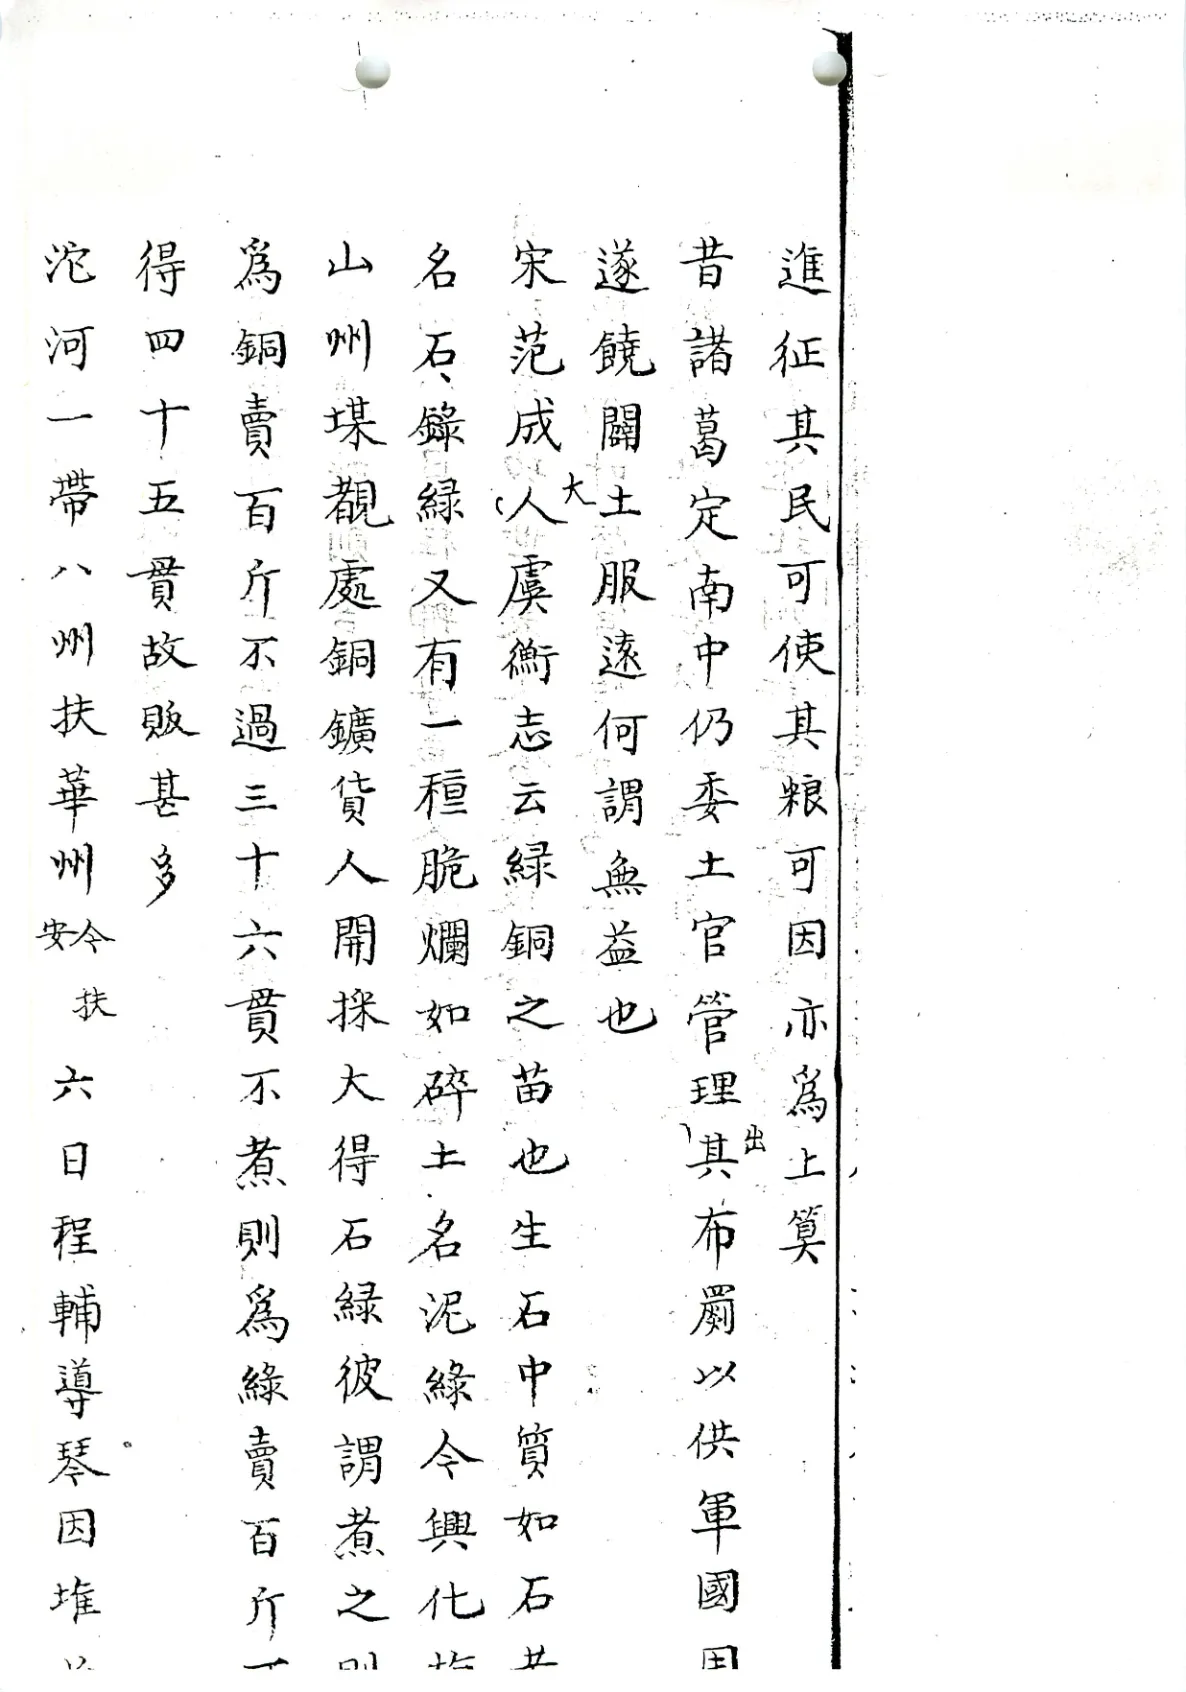 進征其民可使其粮可因亦爲上算
昔諸葛定南中仍委土官管理其出布罽以供軍國
遂饒闢土服遠何謂無益也
宋范成大人虞衡志云緑銅之苗也生石中質如石
名石錄緑又有一種脆爛如碎土名泥綠今興化
山州堞覩處銅鑛貨人開採大得石緑彼謂煮之則
爲銅賣百斤不過三十六貫不煮則爲綠賣百斤
得四十五貫故販甚多
沱河一帶八州扶華州今扶安六日程輔導琴因堆